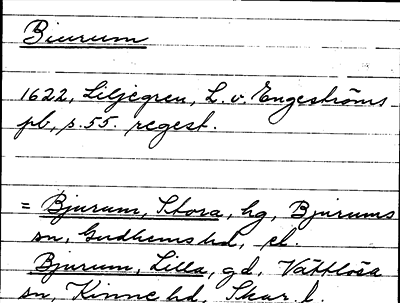 Biurum
1622, Liljegren, L. v. Engeströms
pb, s. 55. regest.
= Bjurum, Stora, hg, Bjurums
sn, Gudhems hd, el.
Bjurum, Lilla, gd, Vättlösa
sn, Kinne hd, Skar. l.